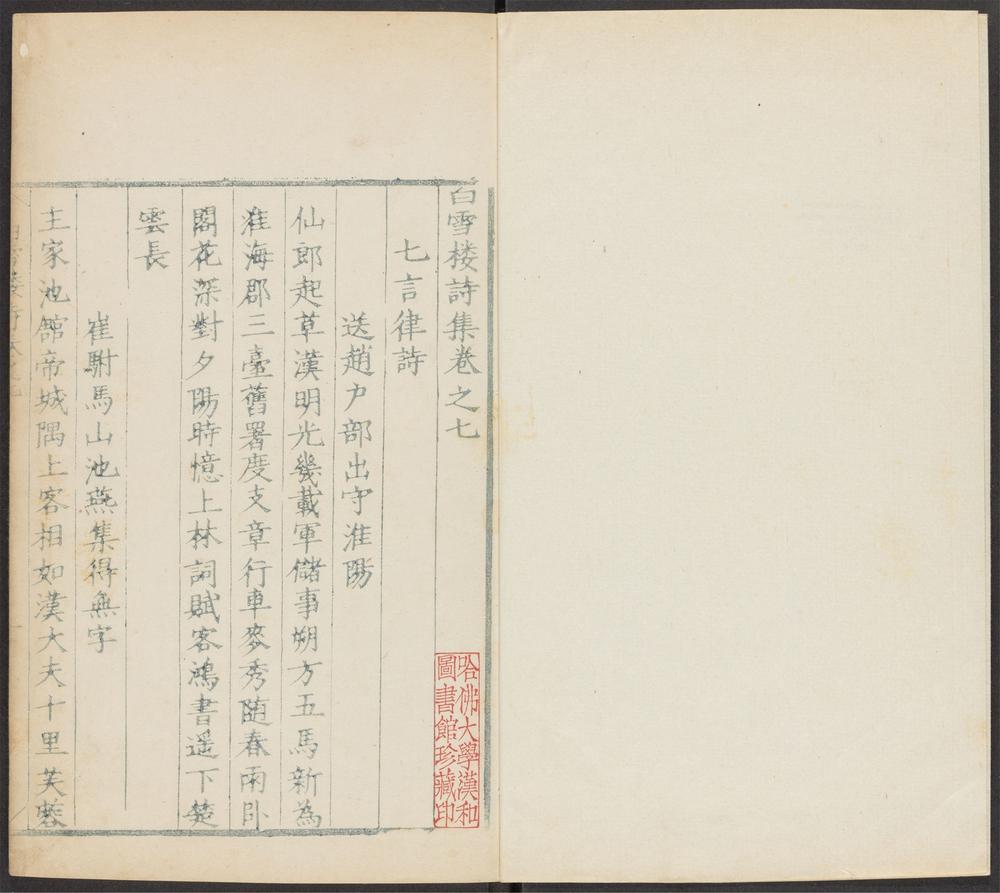 白雪楼詩集卷之七
七言律詩
送趙户部出守淮陽
仙郎起草漢明光幾載軍儲事朔方五馬新為
淮海郡三臺舊署度支章行車麥秀随春雨卧
閣花深對夕陽時憶上林詞賦客鴻書遥下楚
雲長
崔駙馬山池燕集得無字
主家池館帝城隅上客相如漢大夫十里芙蓉
哈佛大學漢和
圖書館珍藏印